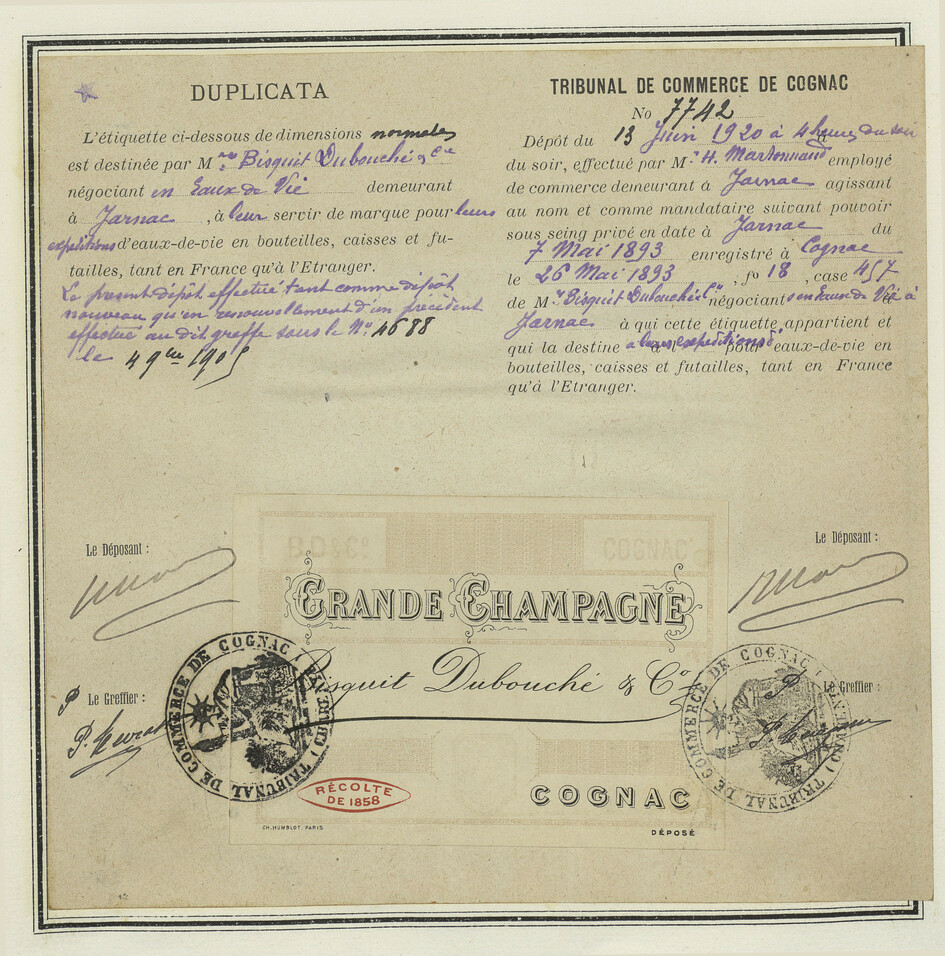 DUPLICATA
L'étiquette ci-dessous de dimensions normales
est destinée par M rs Bisquit Dubouché & Cie
négociant en Eaux de Vie demeurant
à Jarnac, à leur servir de marque pour leurs
expéditions d'eaux-de-vie en bouteilles, caisses et fu-
tailles, tant en France qu'à l'Etranger.
Le présent dépôt effectué tant comme dépôt
nouveau qu'en renouvellement d'un précédent
effectué au dit greffe sous le No 4688
le 4 9bre 1905
TRIBUNAL DE COMMERCE DE COGNAC
No 7742
Dépôt du 13 Juin 1920 à 4 heures du soir
du soir, effectué par M. H. Martonnaud employé
de commerce demeurant à Jarnac agissant
au nom et comme mandataire suivant pouvoir
sous seing privé en date à Jarnac du
7 Mai 1893 enregistré à Cognac
le 26 Mai 1893, fo 18, case 457
de M rs Bisquit Dubouché & Co négociants en Eaux de Vie à
Jarnac à qui cette étiquette appartient et
qui la destine à leurs expéditions d'eaux-de-vie en
bouteilles, caisses et futailles, tant en France
qu'à l'Etranger.
Le Déposant :
Le Déposant :
B.D & Co
COGNAC
GRANDE CHAMPAGNE
Bisquit Dubouché & Co
RÉCOLTE
DE 1858
COGNAC
CH. HUMBLOT. PARIS
DÉPOSÉ
P Le Greffier :
P Le Greffier :
TRIBUNAL DE COMMERCE DE COGNAC (CHARENTE)
TRIBUNAL DE COMMERCE DE COGNAC (CHARENTE)